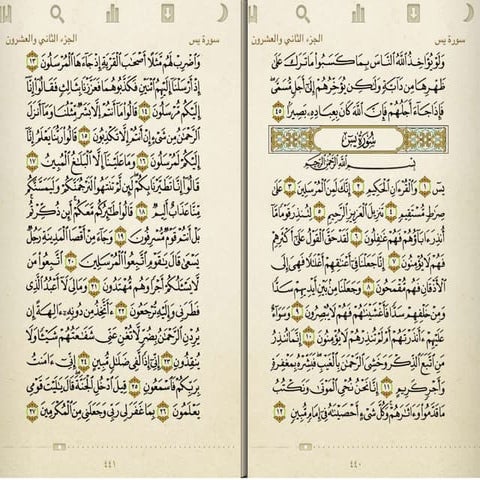 سورة يس الجزء الثاني والعشرون
وَلَوْ يُؤَاخِذُ ٱللَّهُ ٱلنَّاسَ بِمَا كَسَبُوا۟ مَا تَرَكَ عَلَىٰ
ظَهْرِهَا مِن دَآبَّةٍ وَلَٰكِن يُؤَخِّرُهُمْ إِلَىٰٓ أَجَلٍ مُّسَمًّى
فَإِذَا جَآءَ أَجَلُهُمْ فَإِنَّ ٱللَّهَ كَانَ بِعِبَادِهِۦ بَصِيرًۢا ٤٥
سُورَةُ يسٓ
بِسْمِ ٱللَّهِ ٱلرَّحْمَٰنِ ٱلرَّحِيمِ
يسٓ ١ وَٱلْقُرْءَانِ ٱلْحَكِيمِ ٢ إِنَّكَ لَمِنَ ٱلْمُرْسَلِينَ ٣ عَلَىٰ
صِرَٰطٍ مُّسْتَقِيمٍ ٤ تَنزِيلَ ٱلْعَزِيزِ ٱلرَّحِيمِ ٥ لِتُنذِرَ قَوْمًا مَّآ
أُنذِرَ ءَابَآؤُهُمْ فَهُمْ غَٰفِلُونَ ٦ لَقَدْ حَقَّ ٱلْقَوْلُ عَلَىٰٓ أَكْثَرِهِمْ
فَهُمْ لَا يُؤْمِنُونَ ٧ إِنَّا جَعَلْنَا فِىٓ أَعْنَٰقِهِمْ أَغْلَٰلًا فَهِىَ إِلَى
ٱلْأَذْقَانِ فَهُم مُّقْمَحُونَ ٨ وَجَعَلْنَا مِنۢ بَيْنِ أَيْدِيهِمْ سَدًّا
وَمِنْ خَلْفِهِمْ سَدًّا فَأَغْشَيْنَٰهُمْ فَهُمْ لَا يُبْصِرُونَ ٩ وَسَوَآءٌ
عَلَيْهِمْ ءَأَنذَرْتَهُمْ أَمْ لَمْ تُنذِرْهُمْ لَا يُؤْمِنُونَ ١٠ إِنَّمَا تُنذِرُ
مَنِ ٱتَّبَعَ ٱلذِّكْرَ وَخَشِىَ ٱلرَّحْمَٰنَ بِٱلْغَيْبِ فَبَشِّرْهُ بِمَغْفِرَةٍ
وَأَجْرٍ كَرِيمٍ ١١ إِنَّا نَحْنُ نُحْىِ ٱلْمَوْتَىٰ وَنَكْتُبُ
مَا قَدَّمُوا۟ وَءَاثَٰرَهُمْ وَكُلَّ شَىْءٍ أَحْصَيْنَٰهُ فِىٓ إِمَامٍ مُّبِينٍ ١٢
٤٤٠
سورة يس الجزء الثاني والعشرون
وَٱضْرِبْ لَهُم مَّثَلًا أَصْحَٰبَ ٱلْقَرْيَةِ إِذْ جَآءَهَا ٱلْمُرْسَلُونَ ١٣
إِذْ أَرْسَلْنَآ إِلَيْهِمُ ٱثْنَيْنِ فَكَذَّبُوهُمَا فَعَزَّزْنَا بِثَالِثٍ فَقَالُوٓا۟ إِنَّآ
إِلَيْكُم مُّرْسَلُونَ ١٤ قَالُوا۟ مَآ أَنتُمْ إِلَّا بَشَرٌ مِّثْلُنَا وَمَآ أَنزَلَ
ٱلرَّحْمَٰنُ مِن شَىْءٍ إِنْ أَنتُمْ إِلَّا تَكْذِبُونَ ١٥ قَالُوا۟ رَبُّنَا يَعْلَمُ إِنَّآ
إِلَيْكُمْ لَمُرْسَلُونَ ١٦ وَمَا عَلَيْنَآ إِلَّا ٱلْبَلَٰغُ ٱلْمُبِينُ ١٧
قَالُوٓا۟ إِنَّا تَطَيَّرْنَا بِكُمْ لَئِن لَّمْ تَنتَهُوا۟ لَنَرْجُمَنَّكُمْ وَلَيَمَسَّنَّكُم
مِّنَّا عَذَابٌ أَلِيمٌ ١٨ قَالُوا۟ طَٰٓئِرُكُم مَّعَكُمْ أَئِن ذُكِّرْتُم
بَلْ أَنتُمْ قَوْمٌ مُّسْرِفُونَ ١٩ وَجَآءَ مِنْ أَقْصَا ٱلْمَدِينَةِ رَجُلٌ
يَسْعَىٰ قَالَ يَٰقَوْمِ ٱتَّبِعُوا۟ ٱلْمُرْسَلِينَ ٢٠ ٱتَّبِعُوا۟ مَن
لَّا يَسْـَٔلُكُمْ أَجْرًا وَهُم مُّهْتَدُونَ ٢١ وَمَا لِىَ لَآ أَعْبُدُ ٱلَّذِى
فَطَرَنِى وَإِلَيْهِ تُرْجَعُونَ ٢٢ ءَأَتَّخِذُ مِن دُونِهِۦٓ ءَالِهَةً إِن
يُرِدْنِ ٱلرَّحْمَٰنُ بِضُرٍّ لَّا تُغْنِ عَنِّى شَفَٰعَتُهُمْ شَيْـًٔا وَلَا
يُنقِذُونِ ٢٣ إِنِّىٓ إِذًا لَّفِى ضَلَٰلٍ مُّبِينٍ ٢٤ إِنِّىٓ ءَامَنتُ
بِرَبِّكُمْ فَٱسْمَعُونِ ٢٥ قِيلَ ٱدْخُلِ ٱلْجَنَّةَ قَالَ يَٰلَيْتَ قَوْمِى
يَعْلَمُونَ ٢٦ بِمَا غَفَرَ لِى رَبِّى وَجَعَلَنِى مِنَ ٱلْمُكْرَمِينَ ٢٧
٤٤١